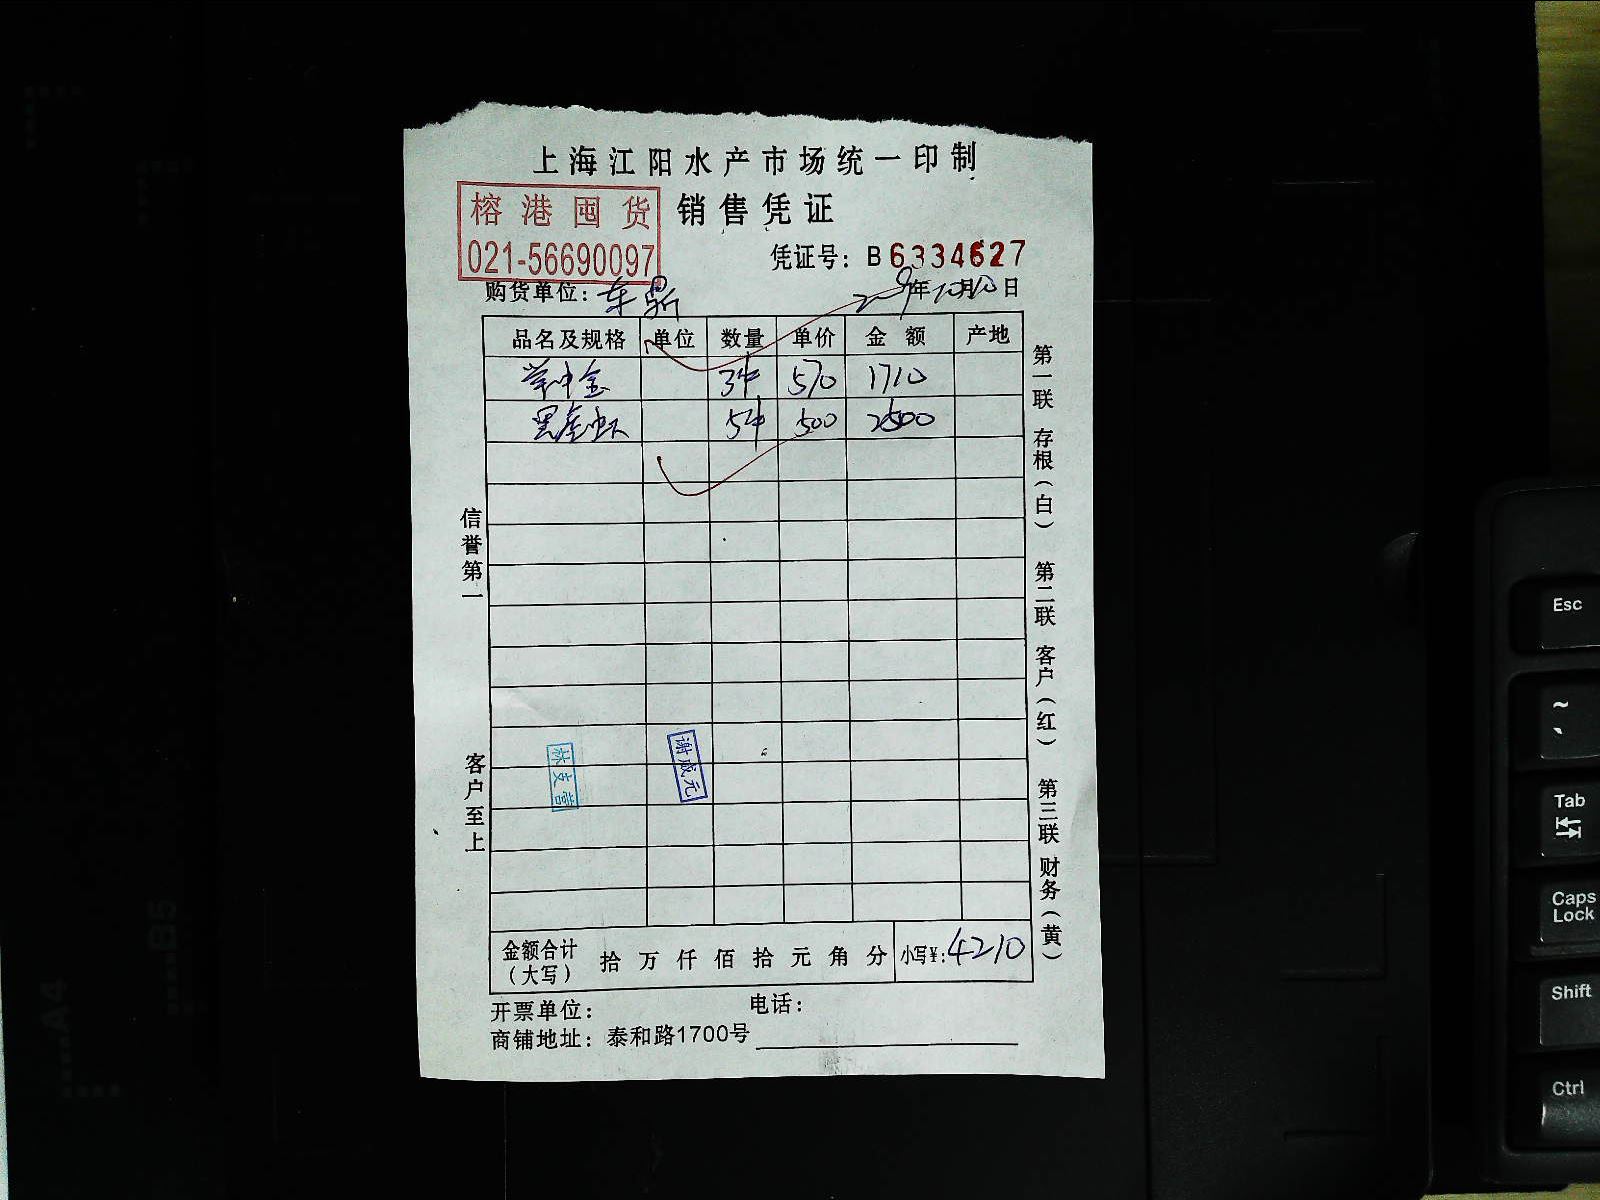 上海江阳水产市场统一印制
榕港囤货 销售凭证
021-56690097
凭证号：B6334627
购货单位： 2009年10月10日
品名及规格 单位 数量 单价 金额 产地
3件 570 1710
黑金虾 5件 500 2500
信誉第一
客户至上
谢成元
第一联 存根（白） 第二联 客户（红） 第三联 财务（黄）
金额合计（大写） 拾 万 仟 佰 拾 元 角 分 小写¥：4210
开票单位： 电话：
商铺地址：泰和路1700号
Esc
~
`
Tab
Caps Lock
Shift
Ctrl
B5
A4